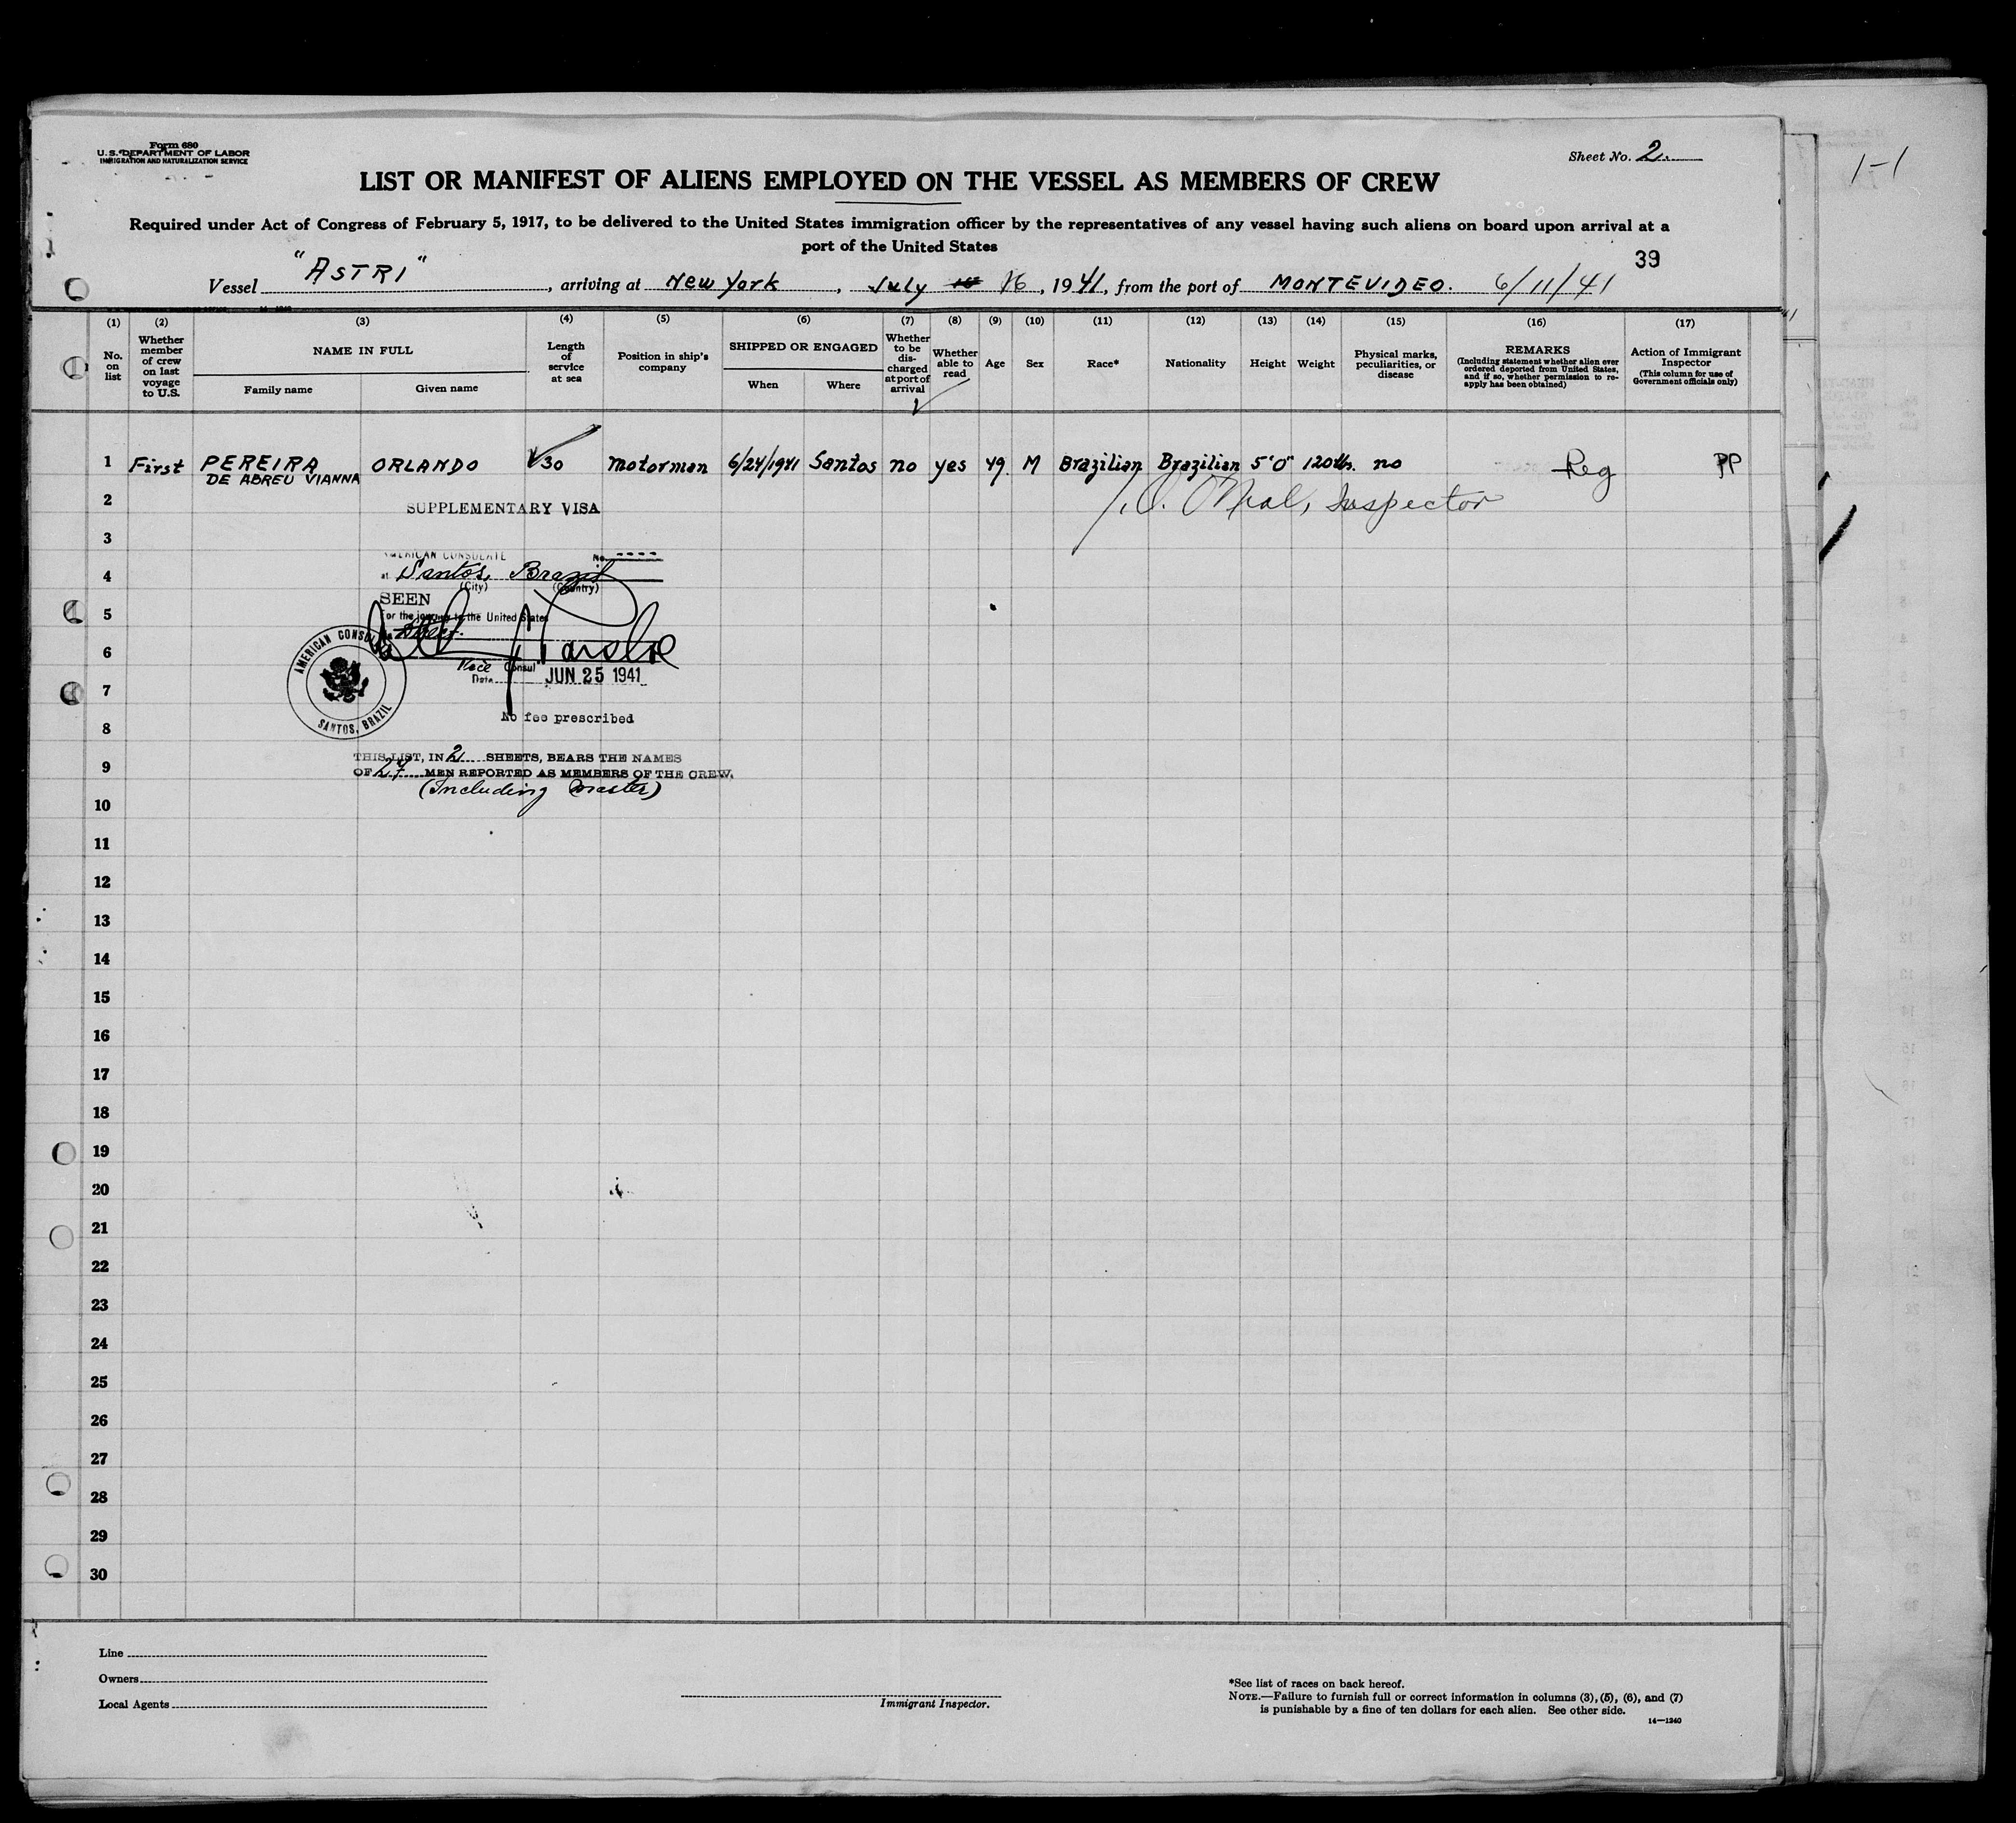 Form 680
U. S. DEPARTMENT OF LABOR
IMMIGRATION AND NATURALIZATION SERVICE
Sheet No. 2
1-1
LIST OR MANIFEST OF ALIENS EMPLOYED ON THE VESSEL AS MEMBERS OF CREW
Required under Act of Congress of February 5, 1917, to be delivered to the United States immigration officer by the representatives of any vessel having such aliens on board upon arrival at a
port of the United States
39
Vessel "ASTRI", arriving at New York, July 16, 1941, from the port of MONTEVIDEO. 6/11/41
(1) (2) (3) (4) (5) (6) (7) (8) (9) (10) (11) (12) (13) (14) (15) (16) (17)
No. on list
Whether member of crew on last voyage to U.S.
NAME IN FULL
Family name
Given name
Length of service at sea
Position in ship's company
SHIPPED OR ENGAGED
When
Where
Whether to be discharged at port of arrival
Whether able to read
Age
Sex
Race*
Nationality
Height
Weight
Physical marks, peculiarities, or disease
REMARKS
(Including statement whether alien ever ordered deported from United States, and if so, whether permission to reapply has been obtained)
Action of Immigrant Inspector
(This column for use of Government officials only)
1 First PEREIRA ORLANDO 30 Motorman 6/24/1941 Santos no yes 49 M Brazilian Brazilian 5'0" 120 lb. no Reg PP
DE ABREU VIANNA
2
SUPPLEMENTARY VISA
Inspector
3
AMERICAN CONSULATE No. ----
4
at Santos, Brazil
(City) (Country)
SEEN
5
For the journey to the United States
6
Vice Consul
7
Date JUN 25 1941
AMERICAN CONSULATE
SANTOS, BRAZIL
No fee prescribed
8
THIS LIST, IN 2 SHEETS, BEARS THE NAMES
9
OF 27 MEN REPORTED AS MEMBERS OF THE CREW.
(Including Master)
10
11
12
13
14
15
16
17
18
19
20
21
22
23
24
25
26
27
28
29
30
Line
Owners
Local Agents
Immigrant Inspector.
*See list of races on back hereof.
NOTE.—Failure to furnish full or correct information in columns (3), (5), (6), and (7)
is punishable by a fine of ten dollars for each alien. See other side.
14—1240